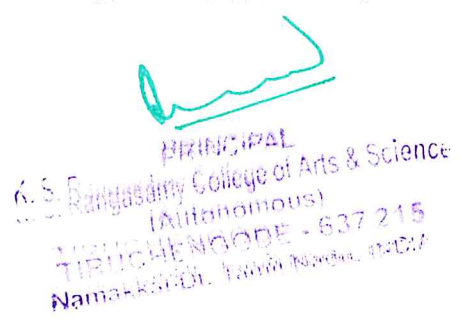 PRINCIPAL
K. S. Rangasamy College of Arts & Science
(Autonomous)
TIRUCHENGODE - 637 215
Namakkal Dt. Tamil Nadu, INDIA